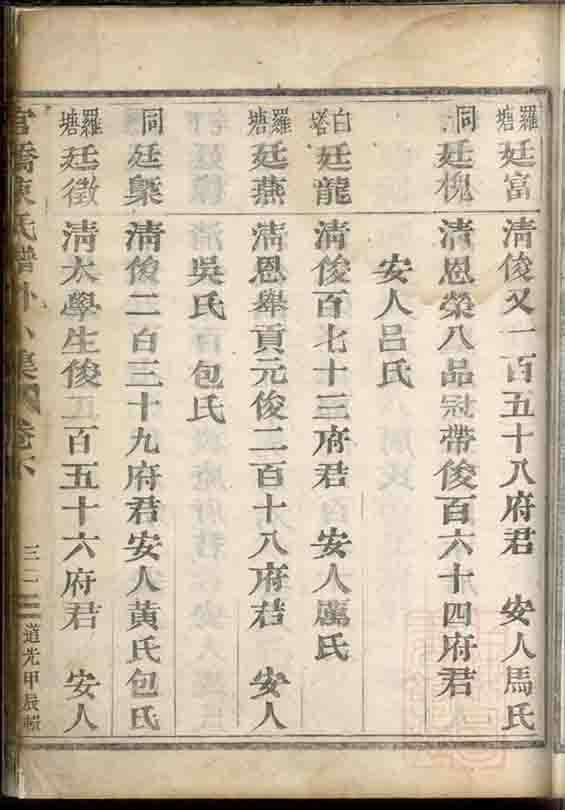 羅塘 廷富 清俊又一百五十八府君 安人馬氏
同 廷槐 清恩榮八品冠帶俊百六十四府君
安人呂氏
白塔 廷龍 清俊百七十三府君 安人厲氏
羅塘 廷燕 清恩舉貢元俊二百十八府君 安人
吳氏 包氏
同 廷槩 清俊二百三十九府君安人黃氏包氏
羅塘 廷徵 清太學生俊二百五十六府君 安人
陳氏譜外小集 卷下 道光甲辰輯